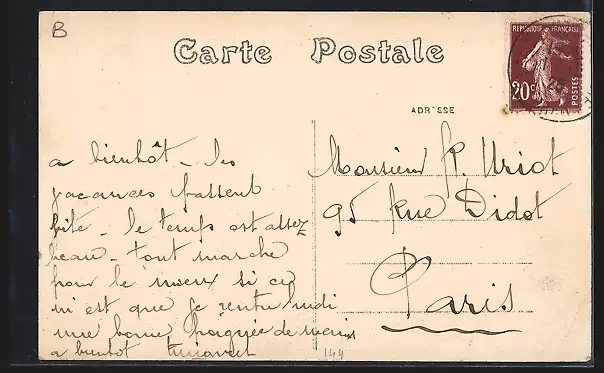 B
Carte Postale
REPUBLIQUE FRANÇAISE
20c
POSTES
ADRESSE
a bientôt - les
vacances passent
vite - le temps est assez
beau - tout marche
pour le mieux si ce
n'est que je rentre lundi
une bonne poignée de mains
a bientot
Monsieur P. Uriot
95 Rue Didot
Paris
144